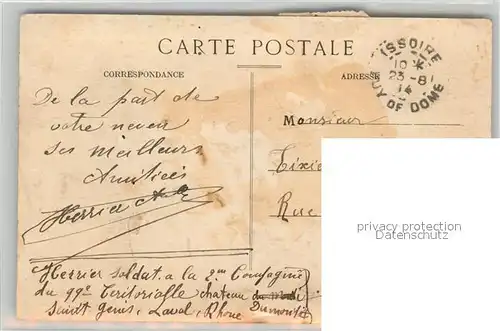 CARTE POSTALE
CORRESPONDANCE
ADRESSE
ISSOIRE
10 *
23-8
14
PUY DE DOME
De la part de
votre neveu
Ses Meilleurs
Amitiés
Herrier
Monsieur
Rue
privacy protection
Datenschutz
Herrier soldat a la 2me Compagnie
du 99e Teritorialle chateau
Saint Genis, Laval, Rhone